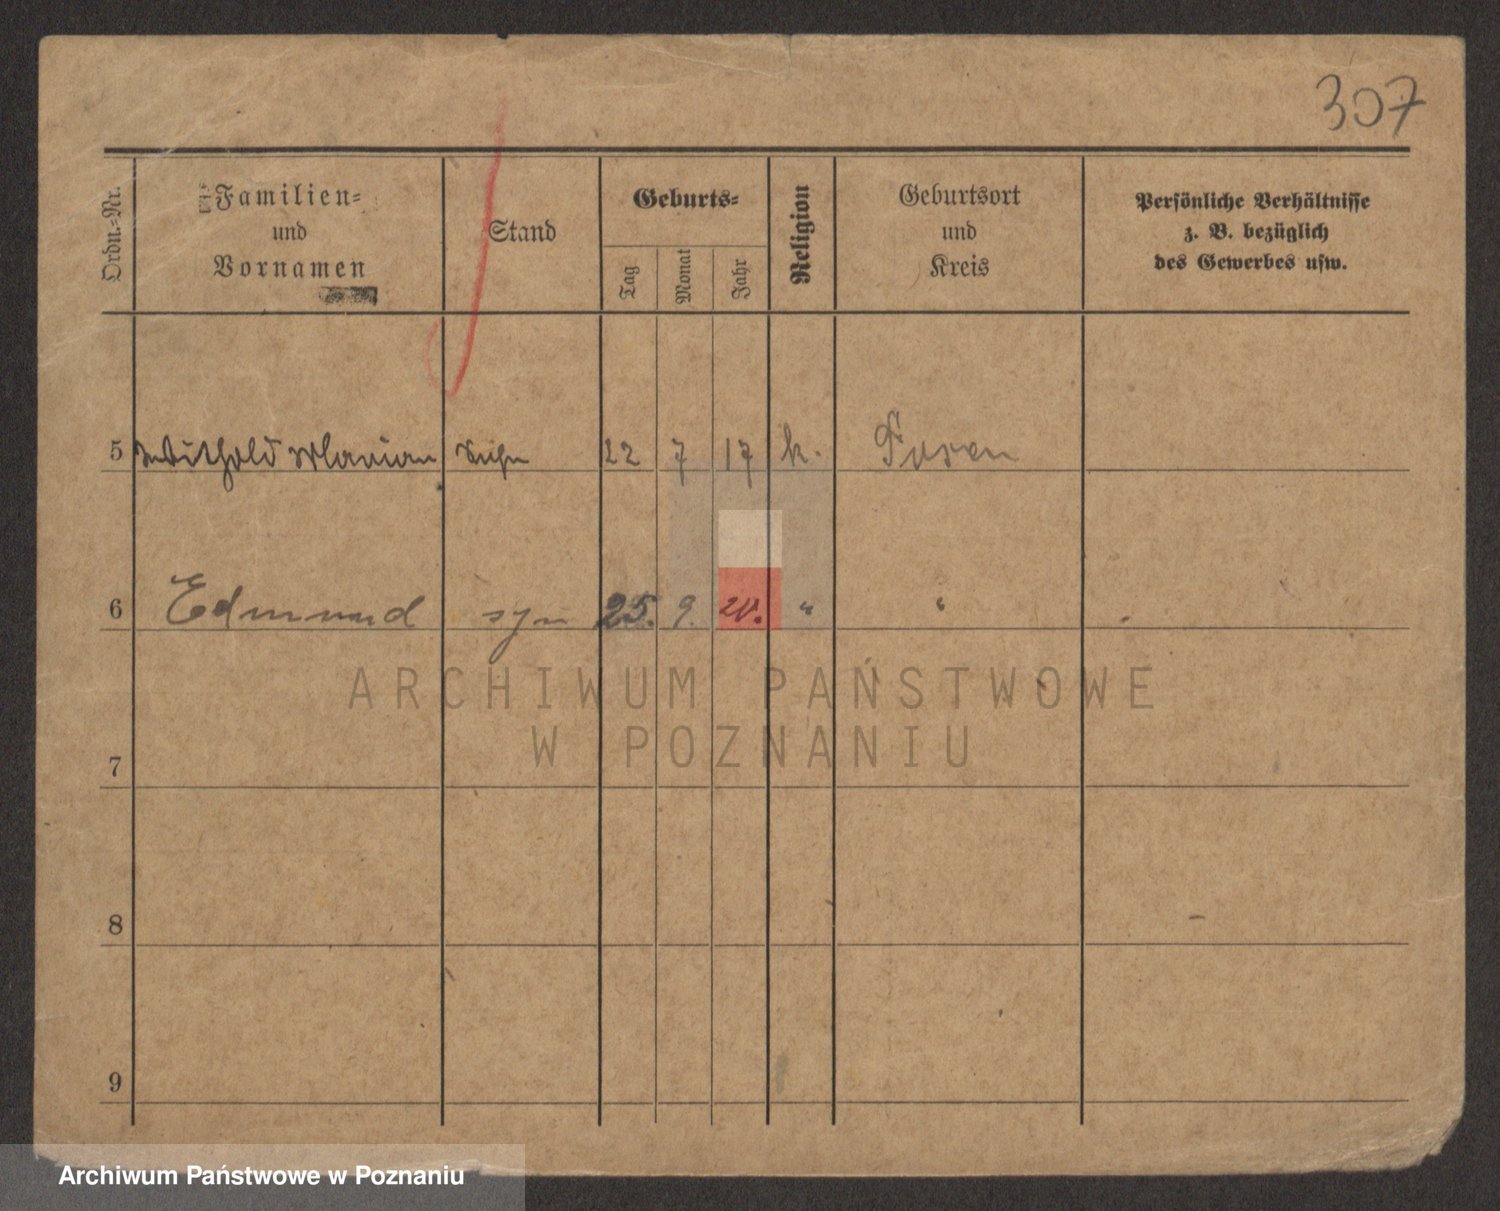 307
Ordn.-Nr.
Familien-
und
Vornamen
Stand
Geburts-
Tag
Monat
Jahr
Religion
Geburtsort
und
Kreis
Persönliche Verhältnisse
z. B. bezüglich
des Gewerbes usw.
5 Withold Marian 22 7 17 k. Posen
6 Edmund syn 25. 9. 20. " "
ARCHIWUM PAŃSTWOWE
W POZNANIU
7
8
9
Archiwum Państwowe w Poznaniu